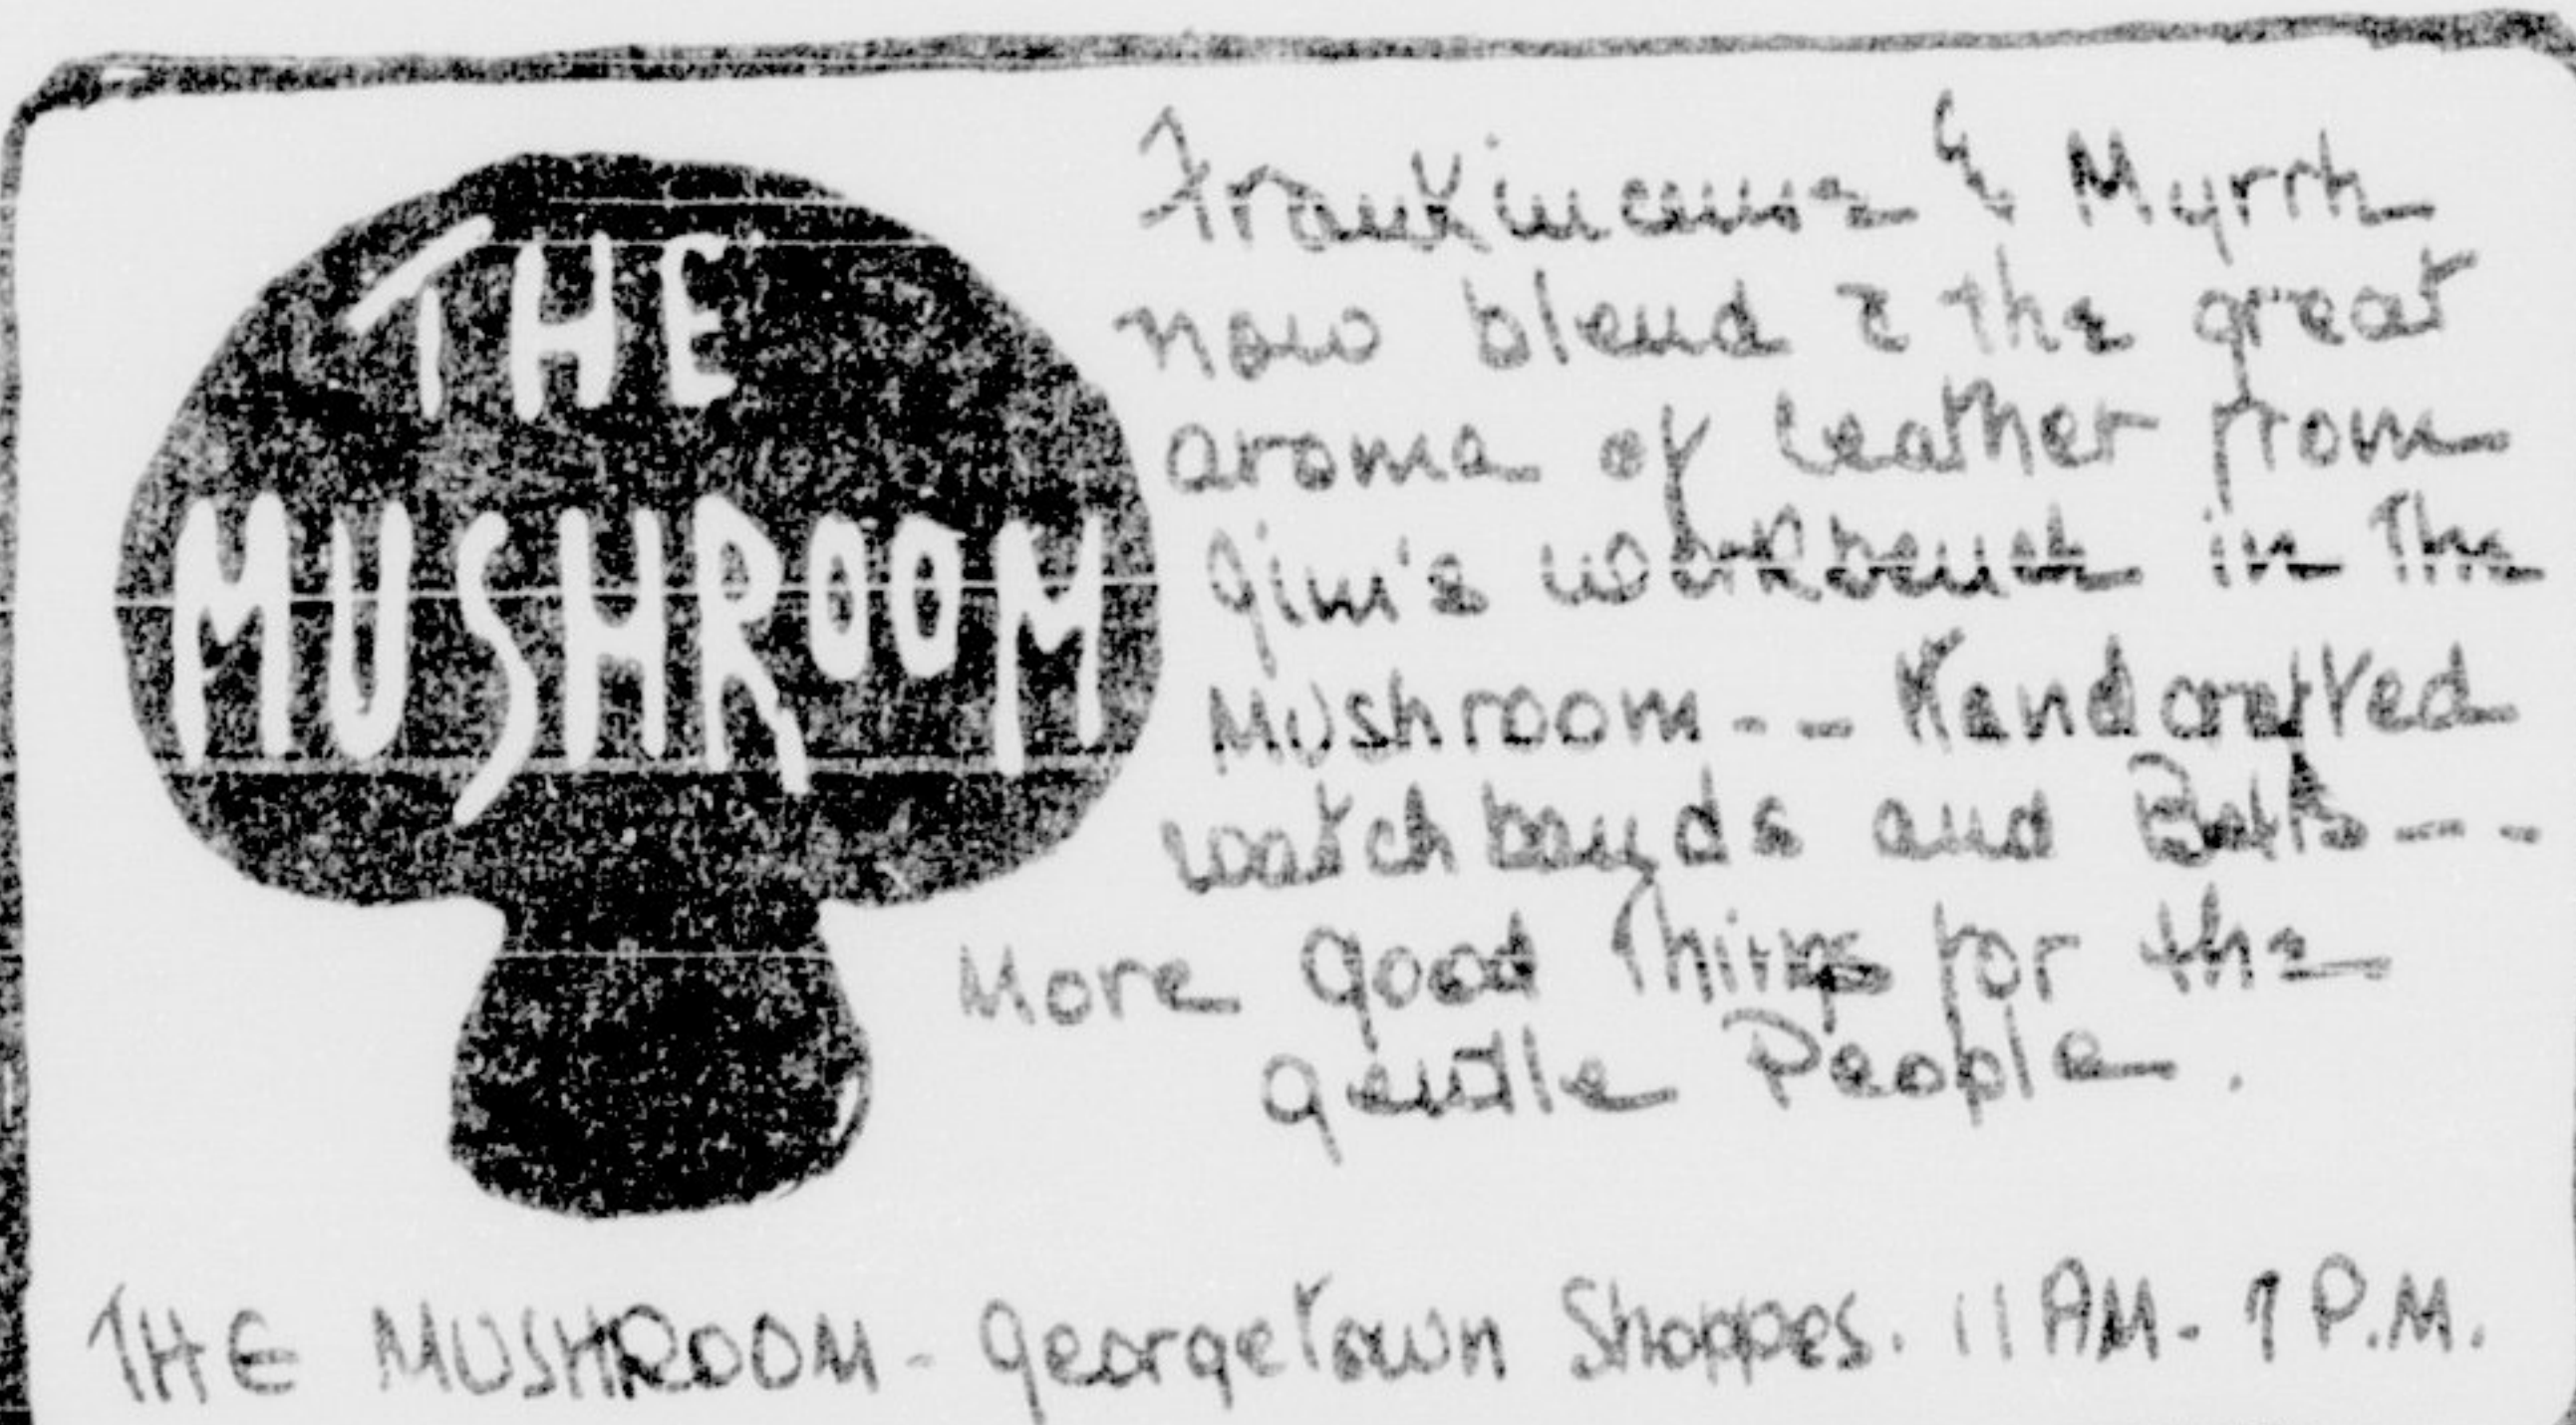 THE
MUSHROOM
Frankincense & Myrrh
now blend c̄ the great
aroma of leather from
Jim's workbench in The
Mushroom--- Handcrafted
watch bands and Belts---
More good Things for the
gentle People.
THE MUSHROOM - Georgetown Shoppes. 11 AM - 7 P.M.